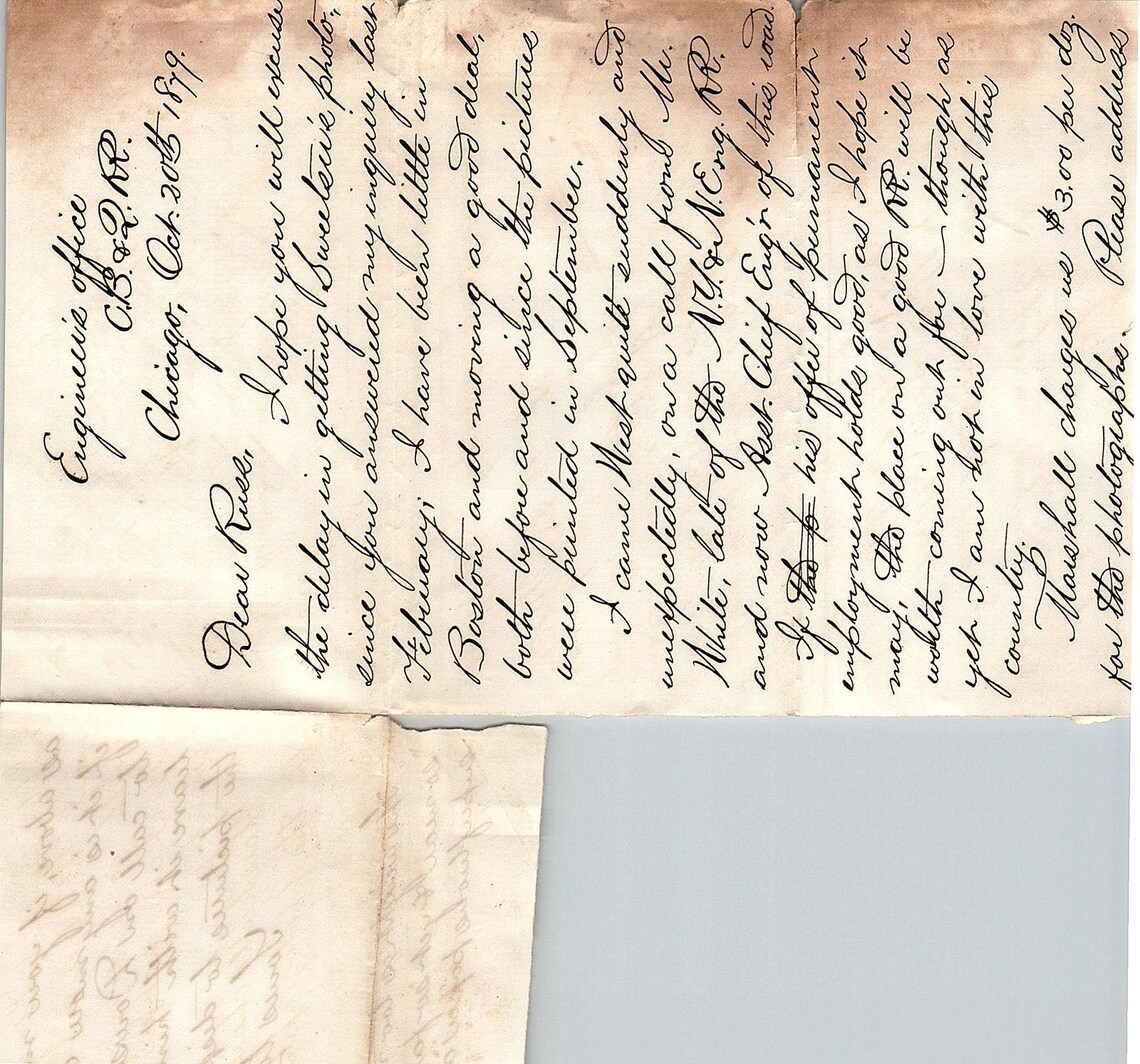 Engineer's office
C.B. & Q. RR.
Chicago, Oct. 20th 1879.
Dear Russ,
I hope you will excuse
the delay in getting Sweetser's photo,
since you answered my inquiry last
February; I have been little in
Boston and moving a good deal,
both before and since the pictures
were printed in September.
I came West quite suddenly and
unexpectedly, on a call from Mr.
White, late of the N.Y. & N.Eng. RR.
and now Asst. Chief Eng'r of this road
If the p his offer of permanent
employment holds good, as I hope it
may, the place on a good RR. will be
worth coming out for — though as
yet I am not in love with this
country.
Marshall charges us $3.00 per doz.
for the photographs. Please address